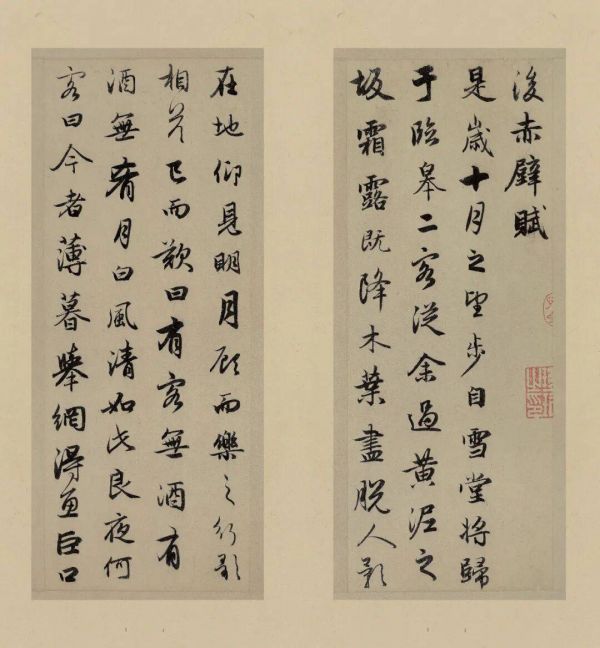 後赤壁賦
是歲十月之望步自雪堂將歸
于臨皋二客從余過黃泥之
坂霜露既降木葉盡脫人影
在地仰見明月顧而樂之行歌
相荅已而歎曰有客無酒有
酒無肴月白風清如此良夜何
客曰今者薄暮舉網得魚巨口